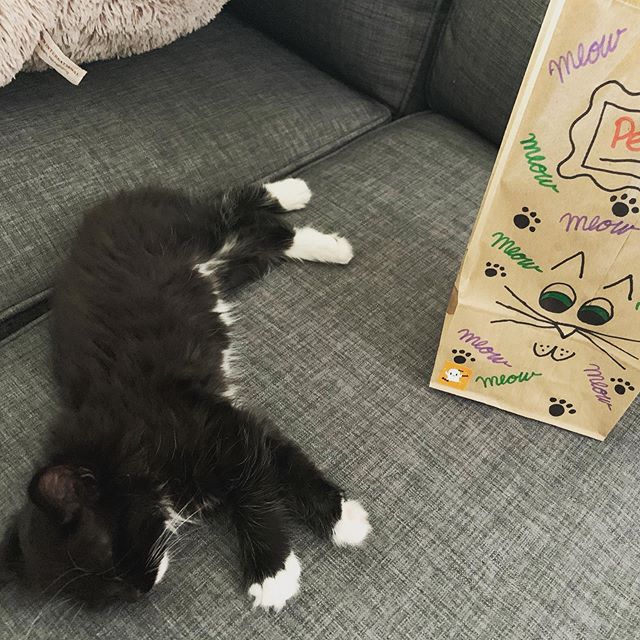 meow
Pe
meow
meow
meow
meow
meow
meow